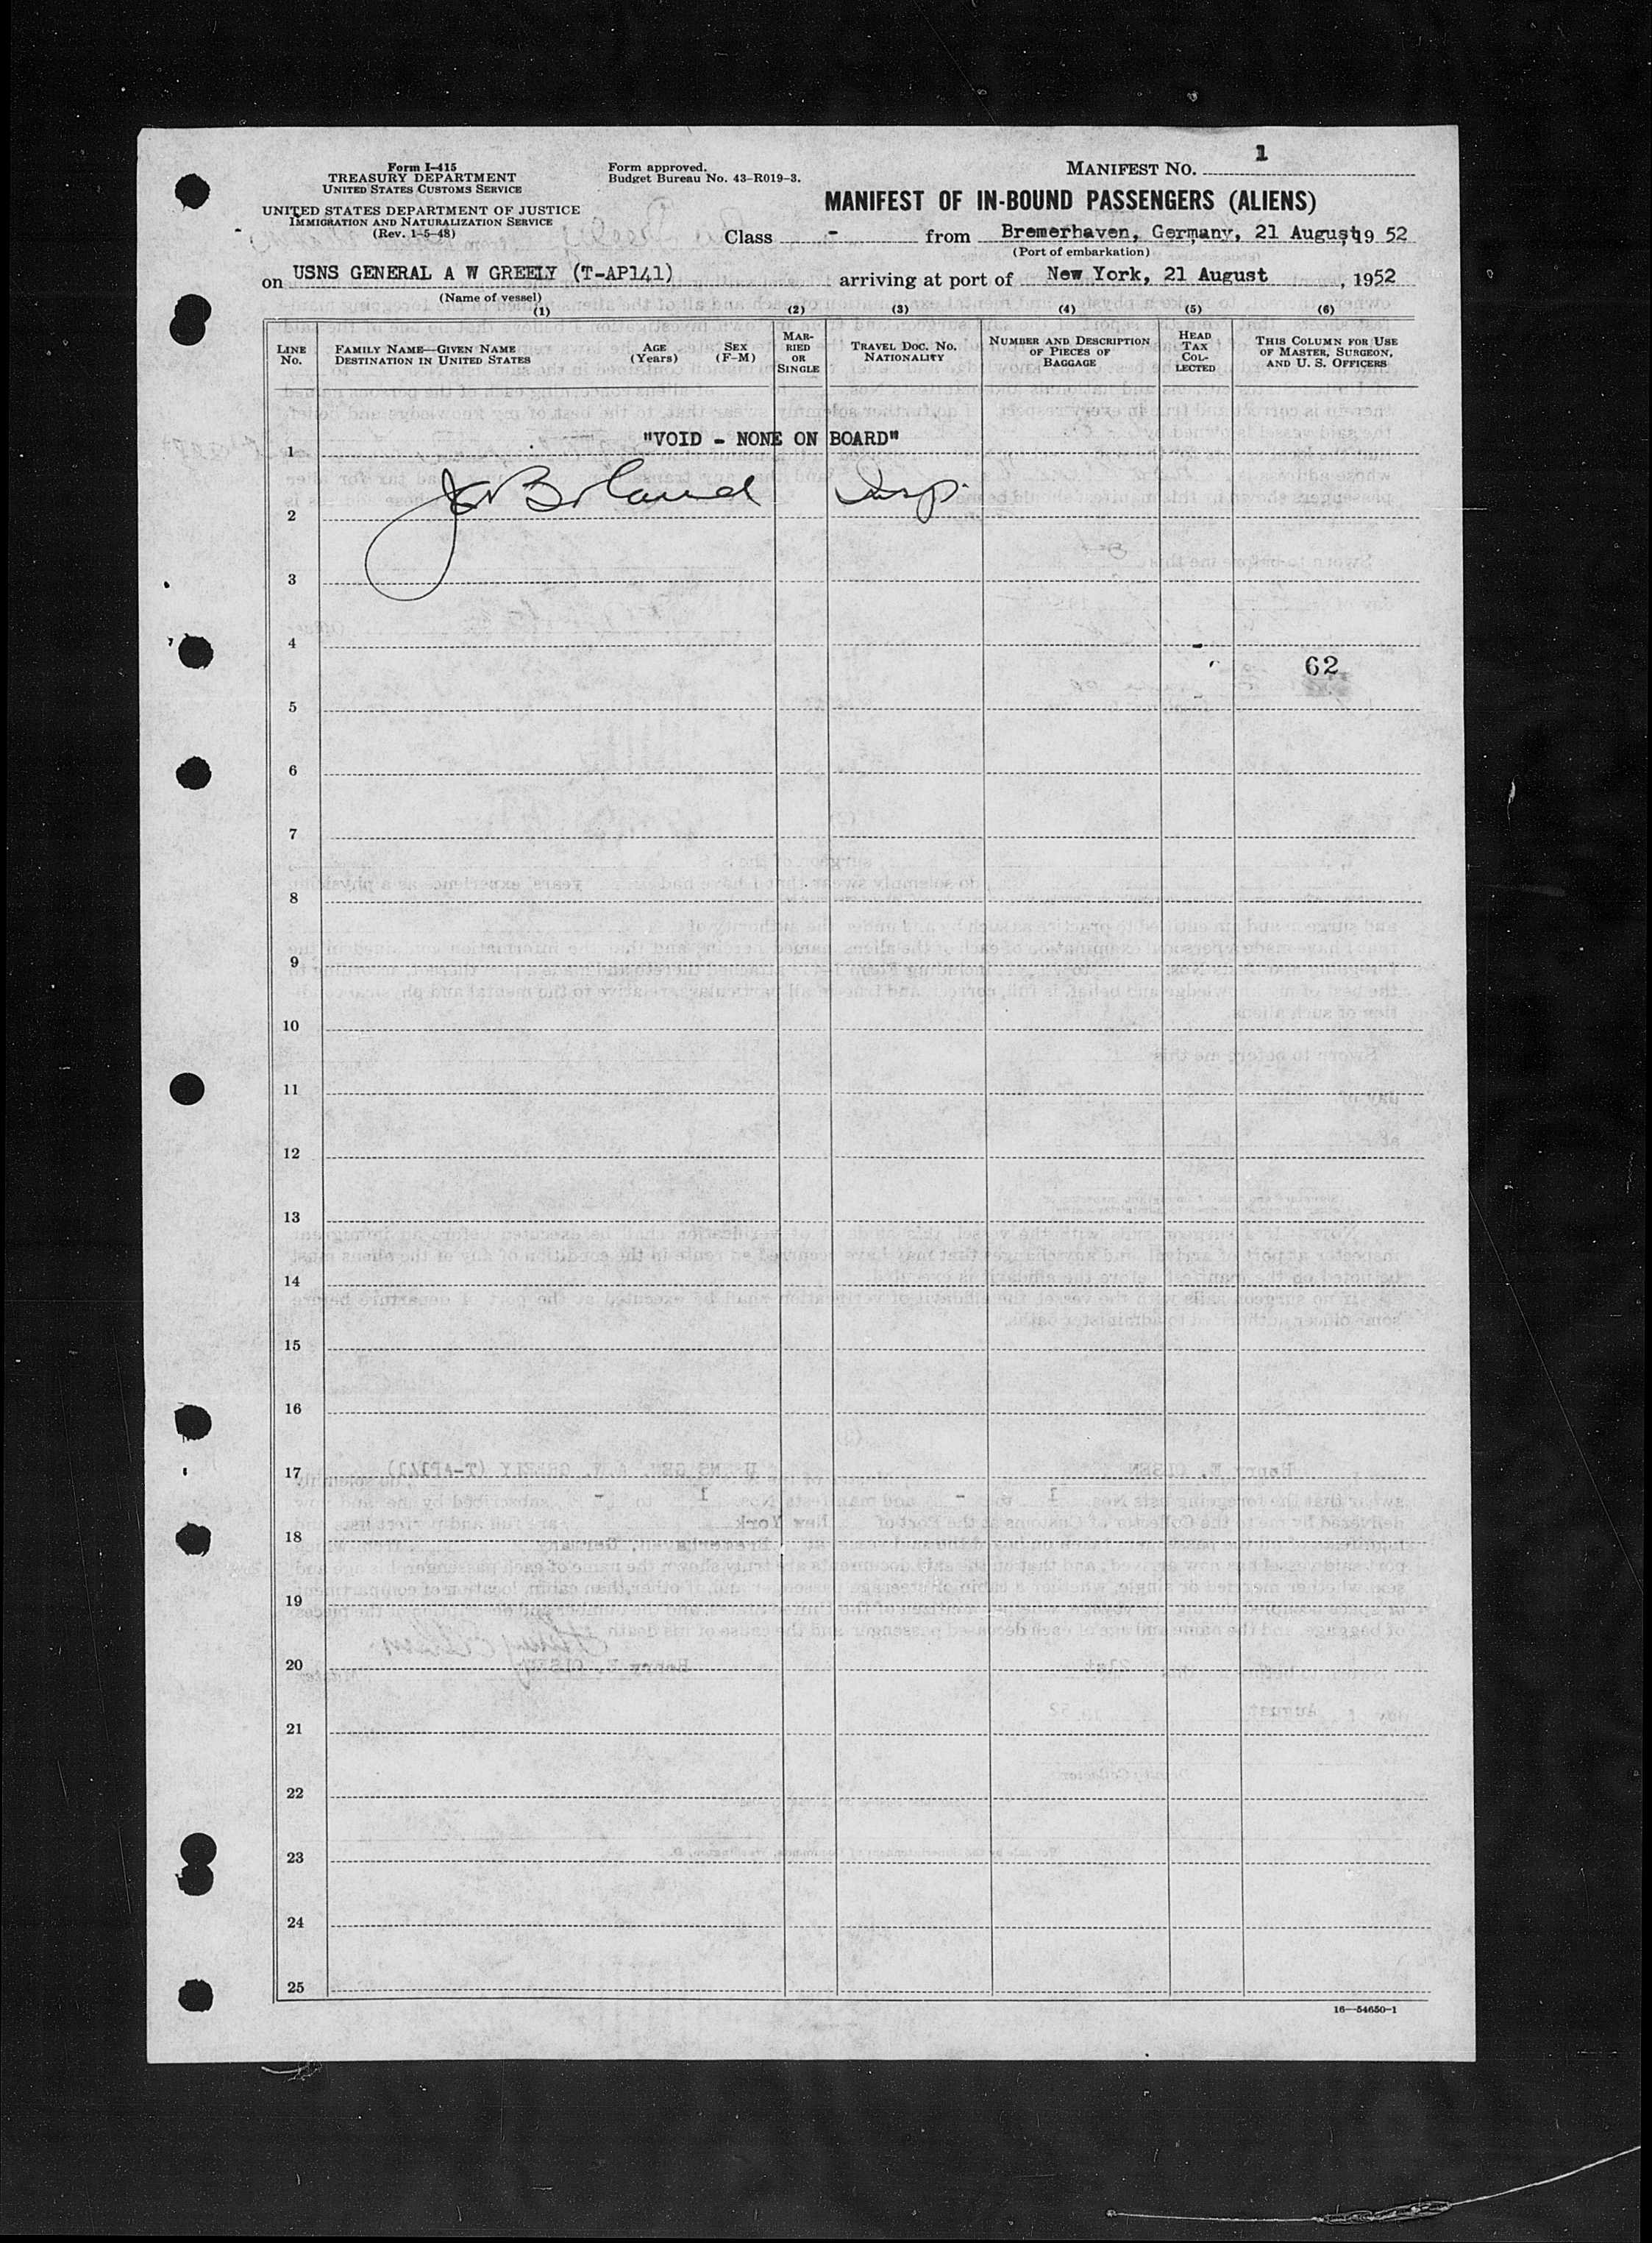 Form I-415
TREASURY DEPARTMENT
UNITED STATES CUSTOMS SERVICE
UNITED STATES DEPARTMENT OF JUSTICE
IMMIGRATION AND NATURALIZATION SERVICE
(Rev. 1-5-48)
Form approved.
Budget Bureau No. 43-R019-3.
MANIFEST NO. 1
MANIFEST OF IN-BOUND PASSENGERS (ALIENS)
Class - from Bremerhaven, Germany, 21 August, 19 52
(Port of embarkation)
on USNS GENERAL A W GREELY (T-AP141) arriving at port of New York, 21 August, 1952
(Name of vessel)
(1) (2) (3) (4) (5) (6)
LINE NO.
FAMILY NAME—GIVEN NAME
DESTINATION IN UNITED STATES
AGE (Years)
SEX (F-M)
MARRIED OR SINGLE
TRAVEL DOC. NO.
NATIONALITY
NUMBER AND DESCRIPTION OF PIECES OF BAGGAGE
HEAD TAX COLLECTED
THIS COLUMN FOR USE OF MASTER, SURGEON, AND U. S. OFFICERS
"VOID - NONE ON BOARD"
1
Insp.
2
3
4
62
5
6
7
8
9
10
11
12
13
14
15
16
17
18
19
20
21
22
23
24
25
16—54650-1